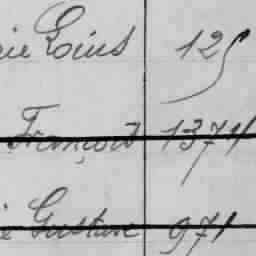 rie Louis 125
François 1371
ie Gustave 971